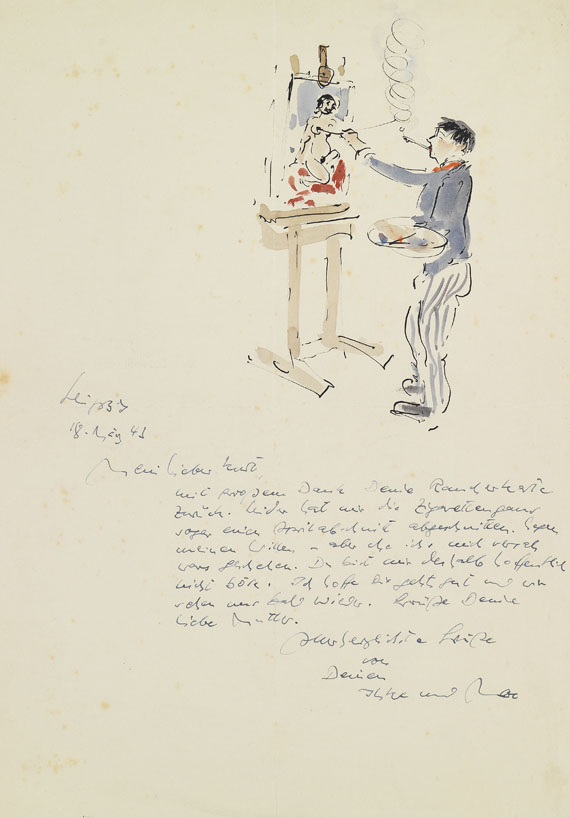 Leipzig
18. März 43
Mein lieber Kurt
mit großem Dank Deine Raucherkarte
zurück. Leider hat mir die Zigarettenfrau
sogar einen Aprilabschnitt abgeschnitten. Gegen
meinen Willen – aber ehe ich mich versah
wars geschehen. Du bist mir deshalb hoffentlich
nicht böse. Ich hoffe Dir geht gut und wir
sehen uns bald wieder. Grüße Deine
liebe Mutter.
allerherzlichste Grüße
von
Deinen
und Max